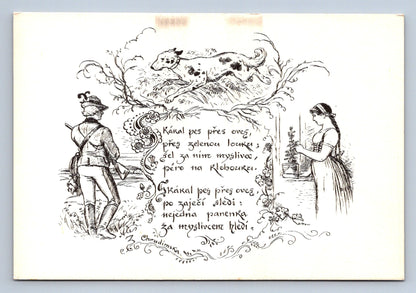 Skákal pes přes oves,
přes zelenou louku;
šel za ním myslivec,
péro na klobouku.
Skákal pes přes oves,
po zaječí sledi:
nejedna panenka
za myslivcem hledí.
Z Chrudimska